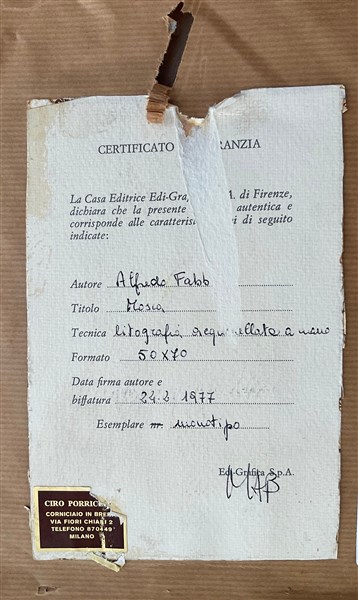 CERTIFICATO RANZIA
La Casa Editrice Edi-Gra M. di Firenze,
dichiara che la presente autentica e
corrisponde alle caratteris i di seguito
indicate:
Autore Alfredo Fabb
Titolo Mosca
Tecnica litografia acquarellata a mano
Formato 50X70
Data firma autore e
biffatura 24.2.1977
Esemplare nr. monotipo
Edi-Grafica S.p.A.
CIRO PORRIC
CORNICIAIO IN BRERA
VIA FIORI CHIARI 2
TELEFONO 870449
MILANO